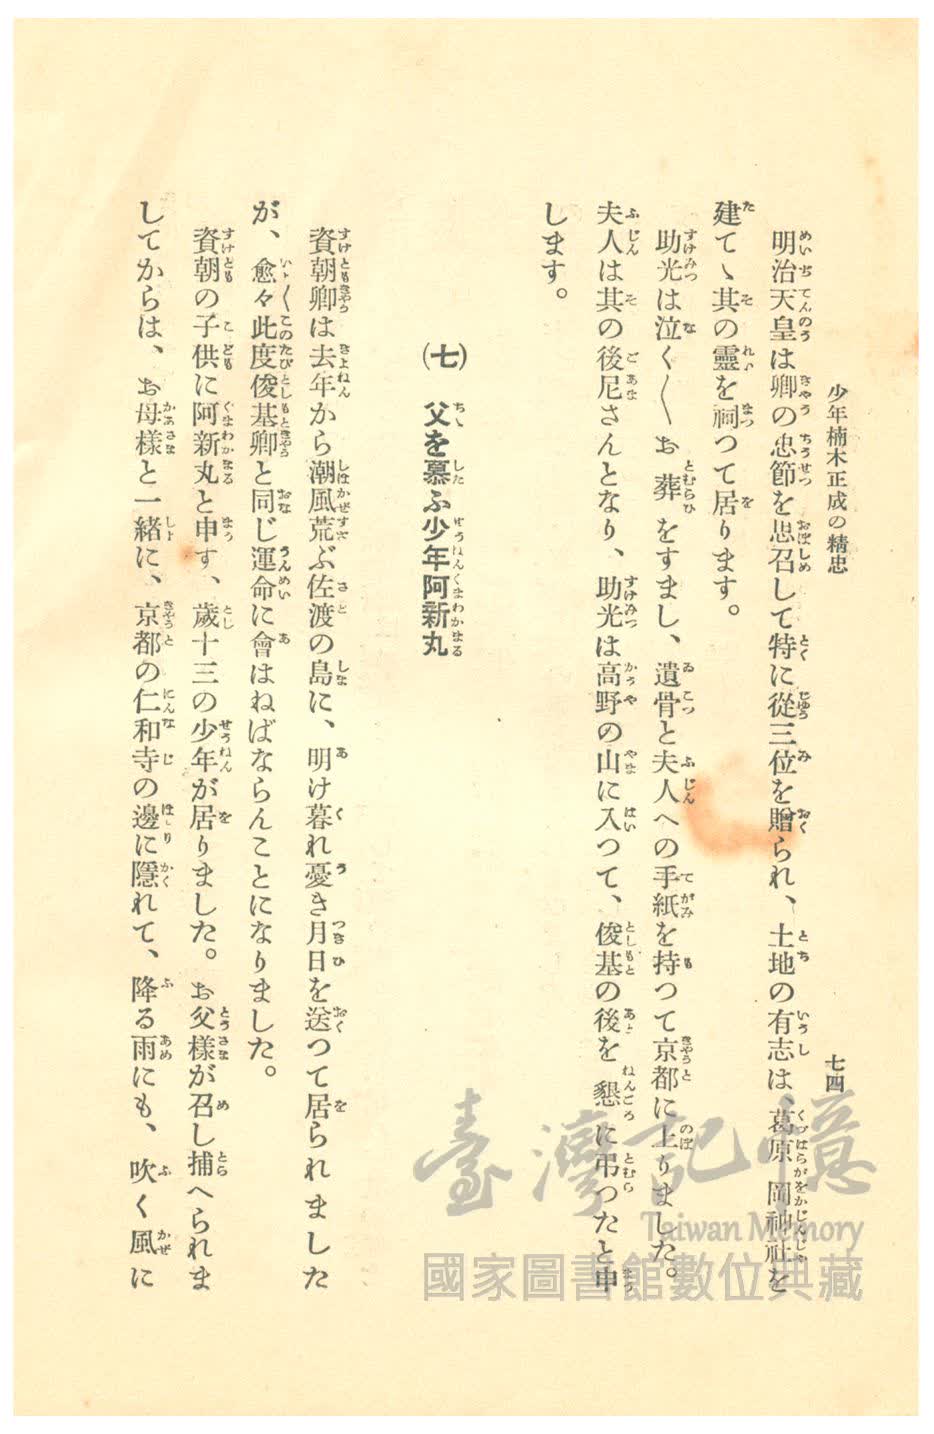 少年楠木正成の精忠
七四
明治天皇は卿の忠節を思召して特に從三位を贈られ、土地の有志は、葛原岡神社を
建てゝ其の靈を祠つて居ります。
助光は泣く〳〵お葬をすまし、遺骨と夫人への手紙を持つて京都に上りました。
夫人は其の後尼さんとなり、助光は高野の山に入つて、俊基の後を懇に弔つたと申
します。
(七) 父を慕ふ少年阿新丸
資朝卿は去年から潮風荒ぶ佐渡の島に、明け暮れ憂き月日を送つて居られました
が、愈々此度俊基卿と同じ運命に會はねばならんことになりました。
資朝の子供に阿新丸と申す、歲十三の少年が居りました。お父樣が召し捕へられま
してからは、お母樣と一緒に、京都の仁和寺の邊に隱れて、降る雨にも、吹く風に
臺灣記憶
Taiwan Memory
國家圖書館數位典藏